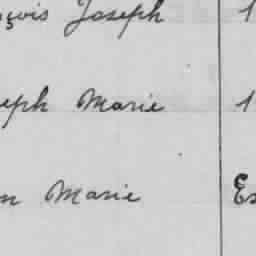 çois Joseph 1
eph Marie 1
n Marie Es